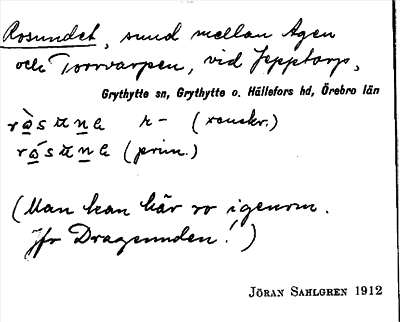 Rosundet, sund mellan Agen
och Torrvarpen, vid Jepptorp,
Grythytte sn, Grythytte o. Hällefors hd, Örebro län
r- (ranskr.)
(prim.)
(Man kan här ro igenom.
Jfr Dragsunden!)
JÖRAN SAHLGREN 1912